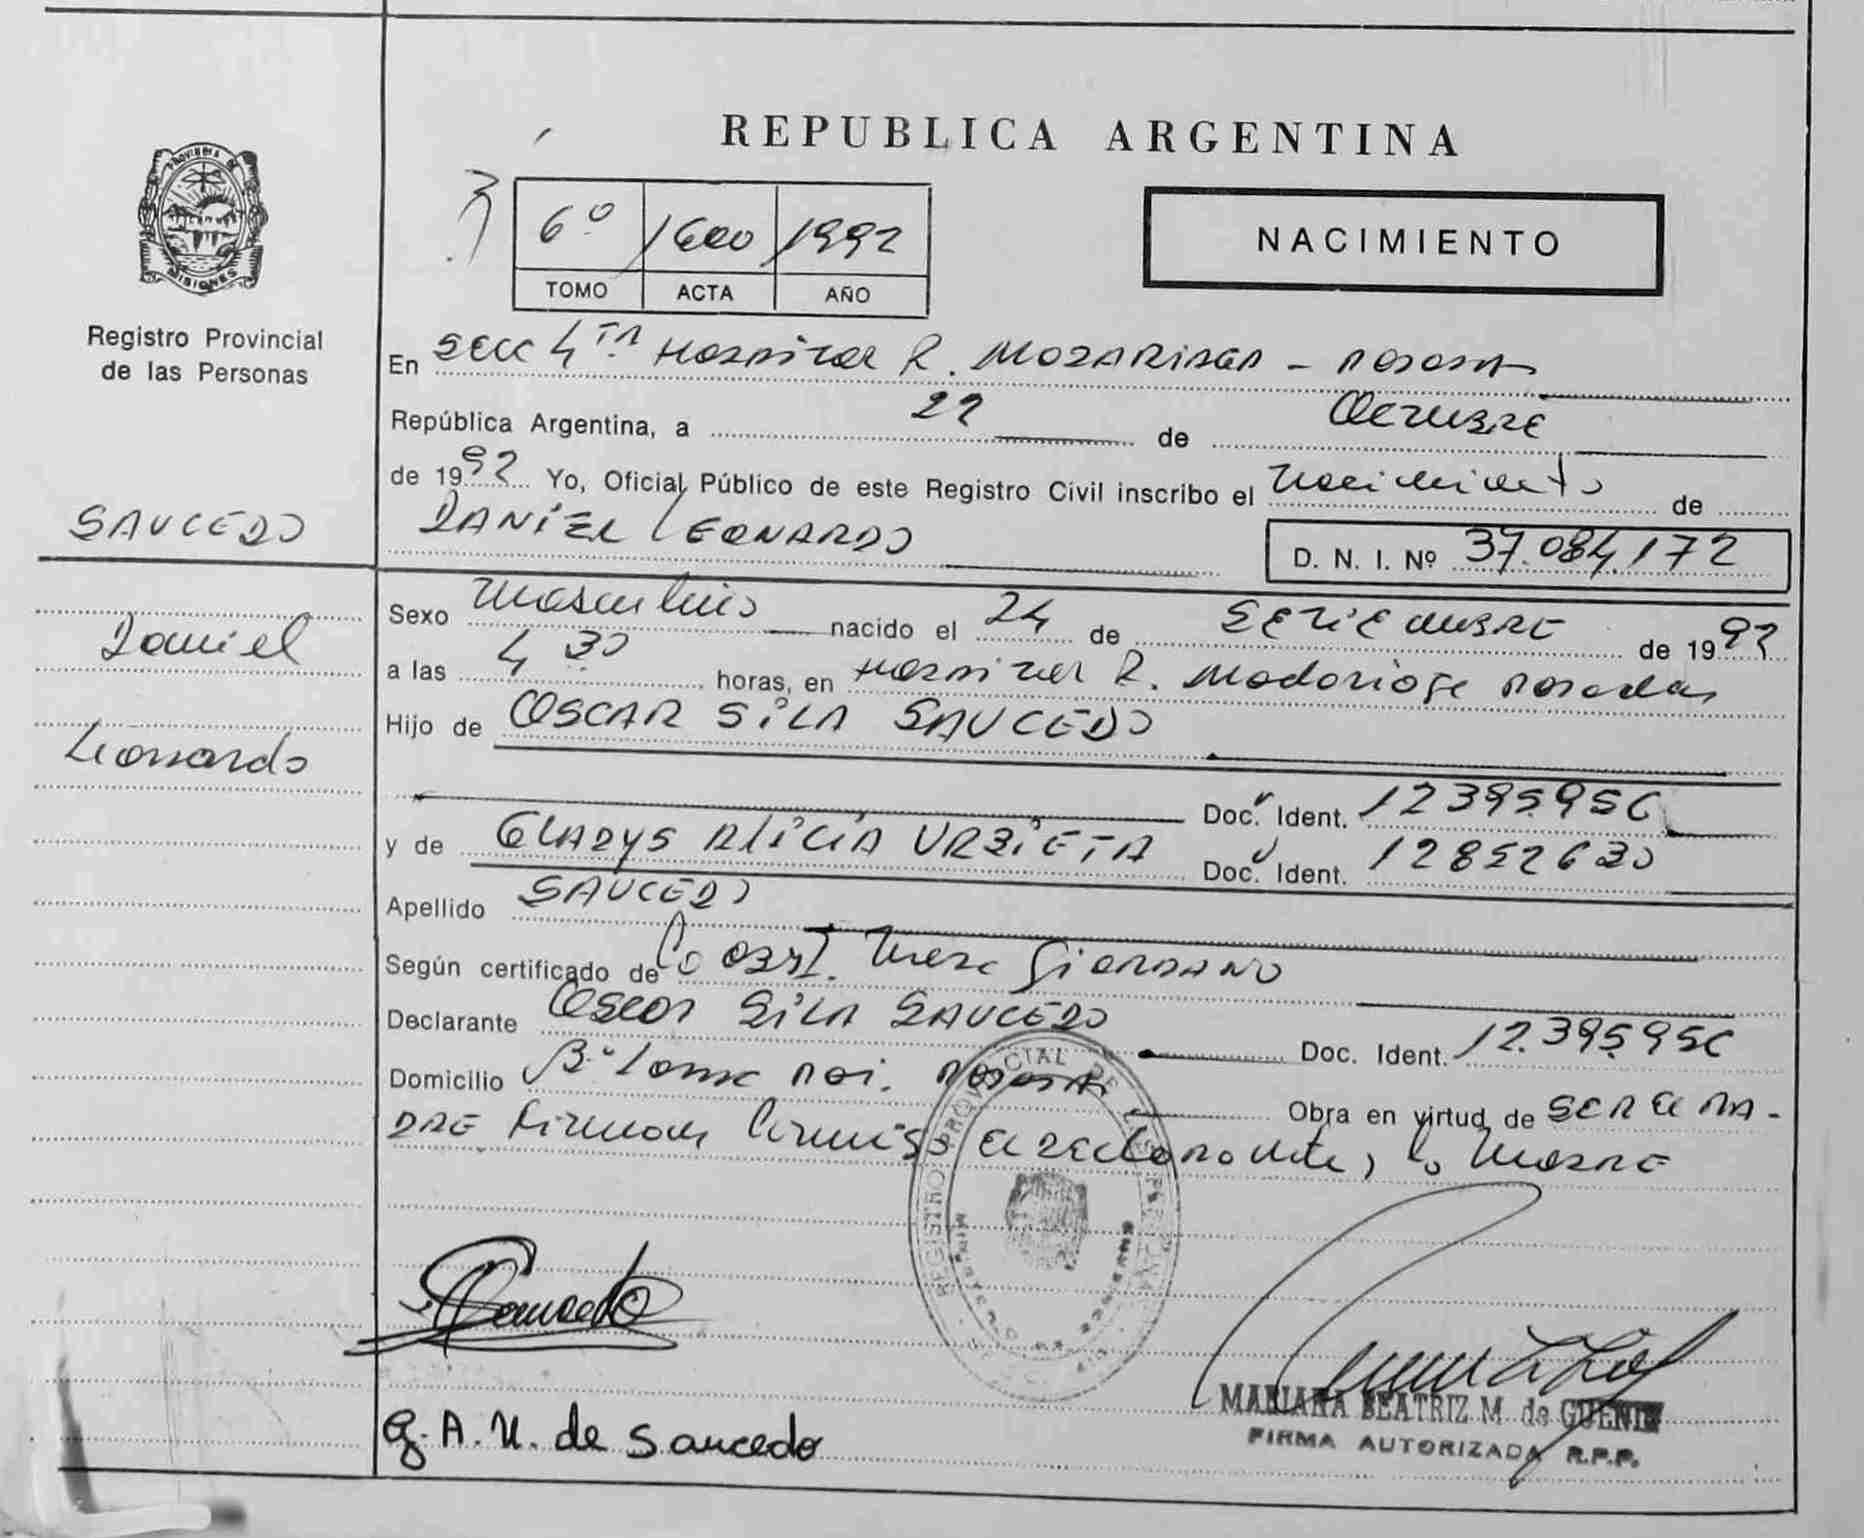 REPUBLICA ARGENTINA
PROVINCIA DE MISIONES
Registro Provincial
de las Personas
6º 1600 1992
TOMO ACTA AÑO
NACIMIENTO
En SECC 4TA HOSPITAL R. MADARIAGA - POSADAS
República Argentina, a 22 de OCTUBRE
de 1992 Yo, Oficial Público de este Registro Civil inscribo el Nacimiento de
SAUCEDO
DANIEL LEONARDO
D. N. I. Nº 37.084.172
Daniel
Leonardo
Sexo Masculino nacido el 24 de SETIEMBRE de 1992
a las 4 30 horas, en Hospital R. Madariaga Posadas
Hijo de OSCAR SILA SAUCEDO
Doc. Ident. 12395956
y de GLADYS ALICIA URBIETA Doc. Ident. 12852630
Apellido SAUCEDO
Según certificado de la OBST. GIORDANO
Declarante Oscar SILA SAUCEDO Doc. Ident. 12.395956
Domicilio Bº POSADAS Obra en virtud de SER EL PA-
DRE Firman el declarante, la MADRE
REGISTRO PROVINCIAL DE LAS PERSONAS
Saucedo
G. A. U. de Saucedo
MARIANA BEATRIZ M. de
FIRMA AUTORIZADA R.P.P.